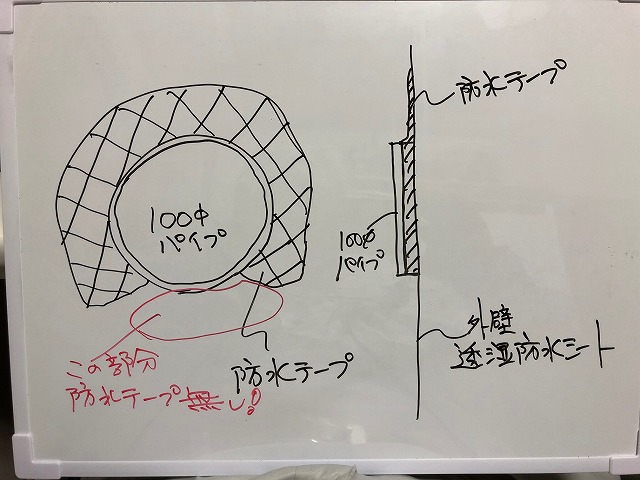 100φ
パイプ
この部分
防水テープ無し!
防水テープ
防水テープ
100φ
パイプ
外壁
透湿防水シート